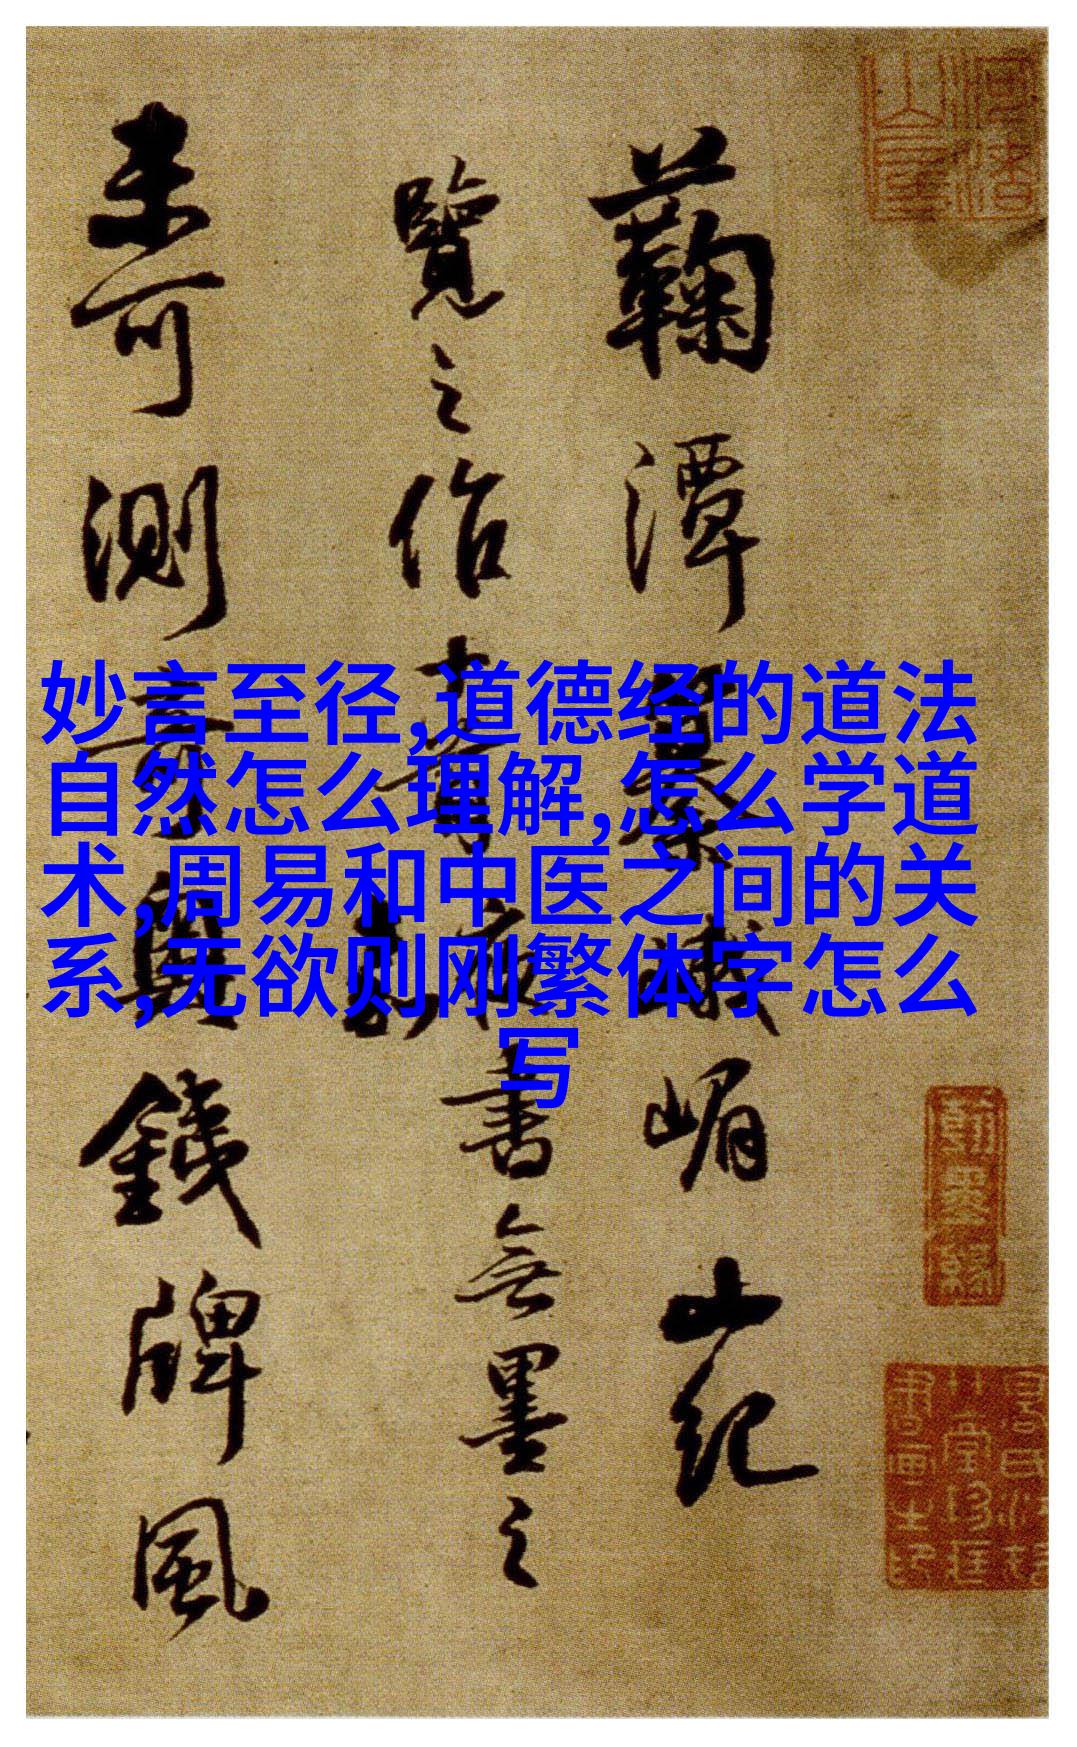 妙言至径,道德经的道法
自然怎么理解,怎么学道
术,周易和中医之间的关
系,无欲则刚繁体字怎么
写
蘜潭峨嵋山紀
覽之作書無墨之
未可測言奧錢牌風
翰墨緣